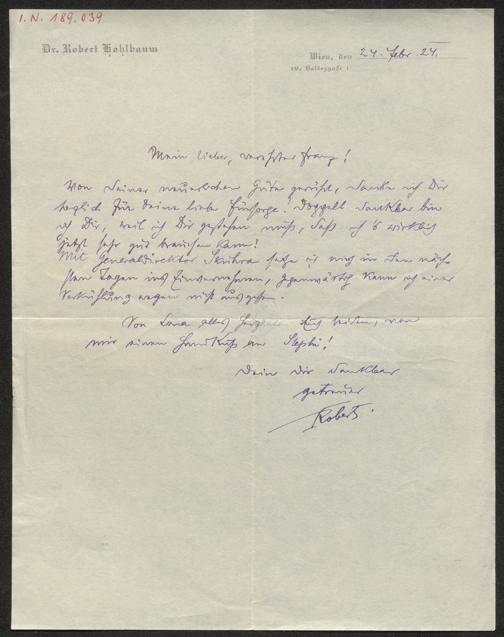 I.N. 189.039
Dr. Robert Hohlbaum
Wien, den 24. Febr. 24.
Mein lieber, verehrter Franz!
Von Deiner neuerlichen Güte gerührt, danke ich Dir
herzlich für Deine liebe Fürsorge! Doppelt dankbar bin
ich Dir, weil ich Dir gestehen muß, daß ich's wirklich
jetzt sehr gut brauchen kann!
Mit Generaldirektor setze ich mich in den näch-
sten Tagen ins Einvernehmen, gegenwärtig kann ich einer
Verkühlung wegen nicht ausgehn.
Von alles Herzliche Euch beiden, von
mir einen Handkuß an
Dein Dir dankbar
getreuer
Robert.